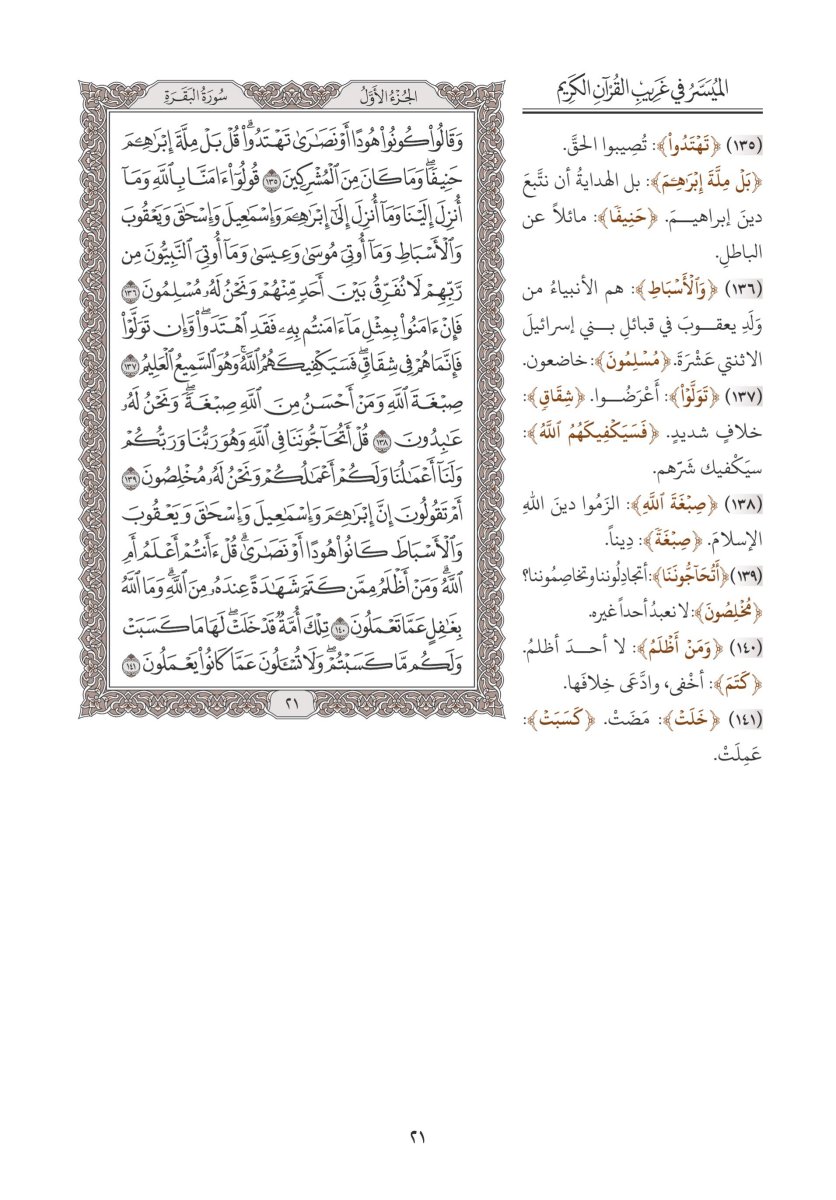 الميسر في غريب القرآن الكريم
(١٣٥) ﴿تَهْتَدُوا۟﴾: تُصِيبوا الحقَّ.
﴿بَلْ مِلَّةَ إِبْرَٰهِـۧمَ﴾: بل الهدايةُ أن نتَّبعَ
دينَ إبراهيـــمَ. ﴿حَنِيفًا﴾: مائلاً عن
الباطلِ.
(١٣٦) ﴿وَٱلْأَسْبَاطِ﴾: هم الأنبياءُ من
وَلَدِ يعقــوبَ في قبائلِ بــني إسرائيلَ
الاثنتي عَشْرَةَ. ﴿مُسْلِمُونَ﴾: خاضعون.
(١٣٧) ﴿تَوَلَّوْا۟﴾: أَعْرَضُــــوا. ﴿شِقَاقٍ﴾:
خلافٍ شديدٍ. ﴿فَسَيَكْفِيكَهُمُ ٱللَّهُ﴾:
سيَكْفيك شَرّهم.
(١٣٨) ﴿صِبْغَةَ ٱللَّهِ﴾: الزَمُوا دينَ اللهِ
الإسلامَ. ﴿صِبْغَةً﴾: دِيناً.
(١٣٩) ﴿أَتُحَآجُّونَنَا﴾: أتجادِلُوننا وتخاصِمُوننا؟
﴿مُخْلِصُونَ﴾: لا نعبدُ أحداً غيره.
(١٤٠) ﴿وَمَنْ أَظْلَمُ﴾: لا أحــدَ أظلمُ.
﴿كَتَمَ﴾: أخْفى، وادَّعَى خِلافَها.
(١٤١) ﴿خَلَتْ﴾: مَضَتْ. ﴿كَسَبَتْ﴾:
عَمِلَتْ.
الجُزْءُ الأَوَّلُ سُورَةُ البَقَرَةِ
وَقَالُوا۟ كُونُوا۟ هُودًا أَوْ نَصَٰرَىٰ تَهْتَدُوا۟ ۗ قُلْ بَلْ مِلَّةَ إِبْرَٰهِـۧمَ
حَنِيفًا ۖ وَمَا كَانَ مِنَ ٱلْمُشْرِكِينَ ١٣٥ قُولُوٓا۟ ءَامَنَّا بِٱللَّهِ وَمَآ
أُنزِلَ إِلَيْنَا وَمَآ أُنزِلَ إِلَىٰٓ إِبْرَٰهِـۧمَ وَإِسْمَٰعِيلَ وَإِسْحَٰقَ وَيَعْقُوبَ
وَٱلْأَسْبَاطِ وَمَآ أُوتِىَ مُوسَىٰ وَعِيسَىٰ وَمَآ أُوتِىَ ٱلنَّبِيُّونَ مِن
رَّبِّهِمْ لَا نُفَرِّقُ بَيْنَ أَحَدٍ مِّنْهُمْ وَنَحْنُ لَهُۥ مُسْلِمُونَ ١٣٦
فَإِنْ ءَامَنُوا۟ بِمِثْلِ مَآ ءَامَنتُم بِهِۦ فَقَدِ ٱهْتَدَوا۟ ۖ وَّإِن تَوَلَّوْا۟
فَإِنَّمَا هُمْ فِى شِقَاقٍ ۖ فَسَيَكْفِيكَهُمُ ٱللَّهُ ۚ وَهُوَ ٱلسَّمِيعُ ٱلْعَلِيمُ ١٣٧
صِبْغَةَ ٱللَّهِ وَمَنْ أَحْسَنُ مِنَ ٱللَّهِ صِبْغَةً ۖ وَنَحْنُ لَهُۥ
عَٰبِدُونَ ١٣٨ قُلْ أَتُحَآجُّونَنَا فِى ٱللَّهِ وَهُوَ رَبُّنَا وَرَبُّكُمْ
وَلَنَآ أَعْمَٰلُنَا وَلَكُمْ أَعْمَٰلُكُمْ وَنَحْنُ لَهُۥ مُخْلِصُونَ ١٣٩
أَمْ تَقُولُونَ إِنَّ إِبْرَٰهِـۧمَ وَإِسْمَٰعِيلَ وَإِسْحَٰقَ وَيَعْقُوبَ
وَٱلْأَسْبَاطَ كَانُوا۟ هُودًا أَوْ نَصَٰرَىٰ ۗ قُلْ ءَأَنتُمْ أَعْلَمُ أَمِ
ٱللَّهُ ۗ وَمَنْ أَظْلَمُ مِمَّن كَتَمَ شَهَٰدَةً عِندَهُۥ مِنَ ٱللَّهِ ۗ وَمَا ٱللَّهُ
بِغَٰفِلٍ عَمَّا تَعْمَلُونَ ١٤٠ تِلْكَ أُمَّةٌ قَدْ خَلَتْ ۖ لَهَا مَا كَسَبَتْ
وَلَكُم مَّا كَسَبْتُمْ ۖ وَلَا تُسْـَٔلُونَ عَمَّا كَانُوا۟ يَعْمَلُونَ ١٤١
٢١
٢١